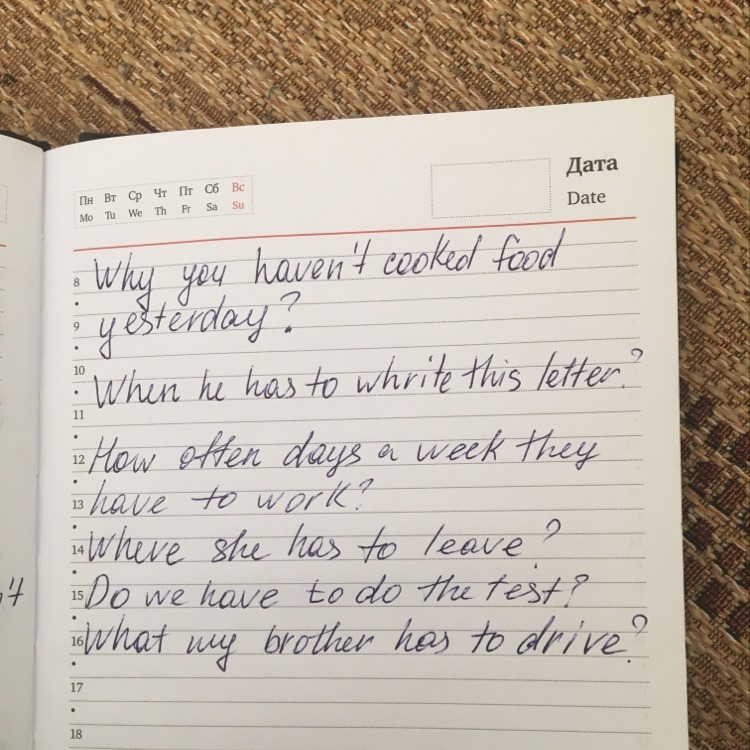 Пн Вт Ср Чт Пт Сб Вс
Mo Tu We Th Fr Sa Su
Дата
Date
8 Why you haven't cooked food
9 yesterday?
10
When he has to whrite this letter?
11
12 How often days a week they
13 have to work?
14 Where she has to leave?
15 Do we have to do the test?
16 What my brother has to drive?
17
18